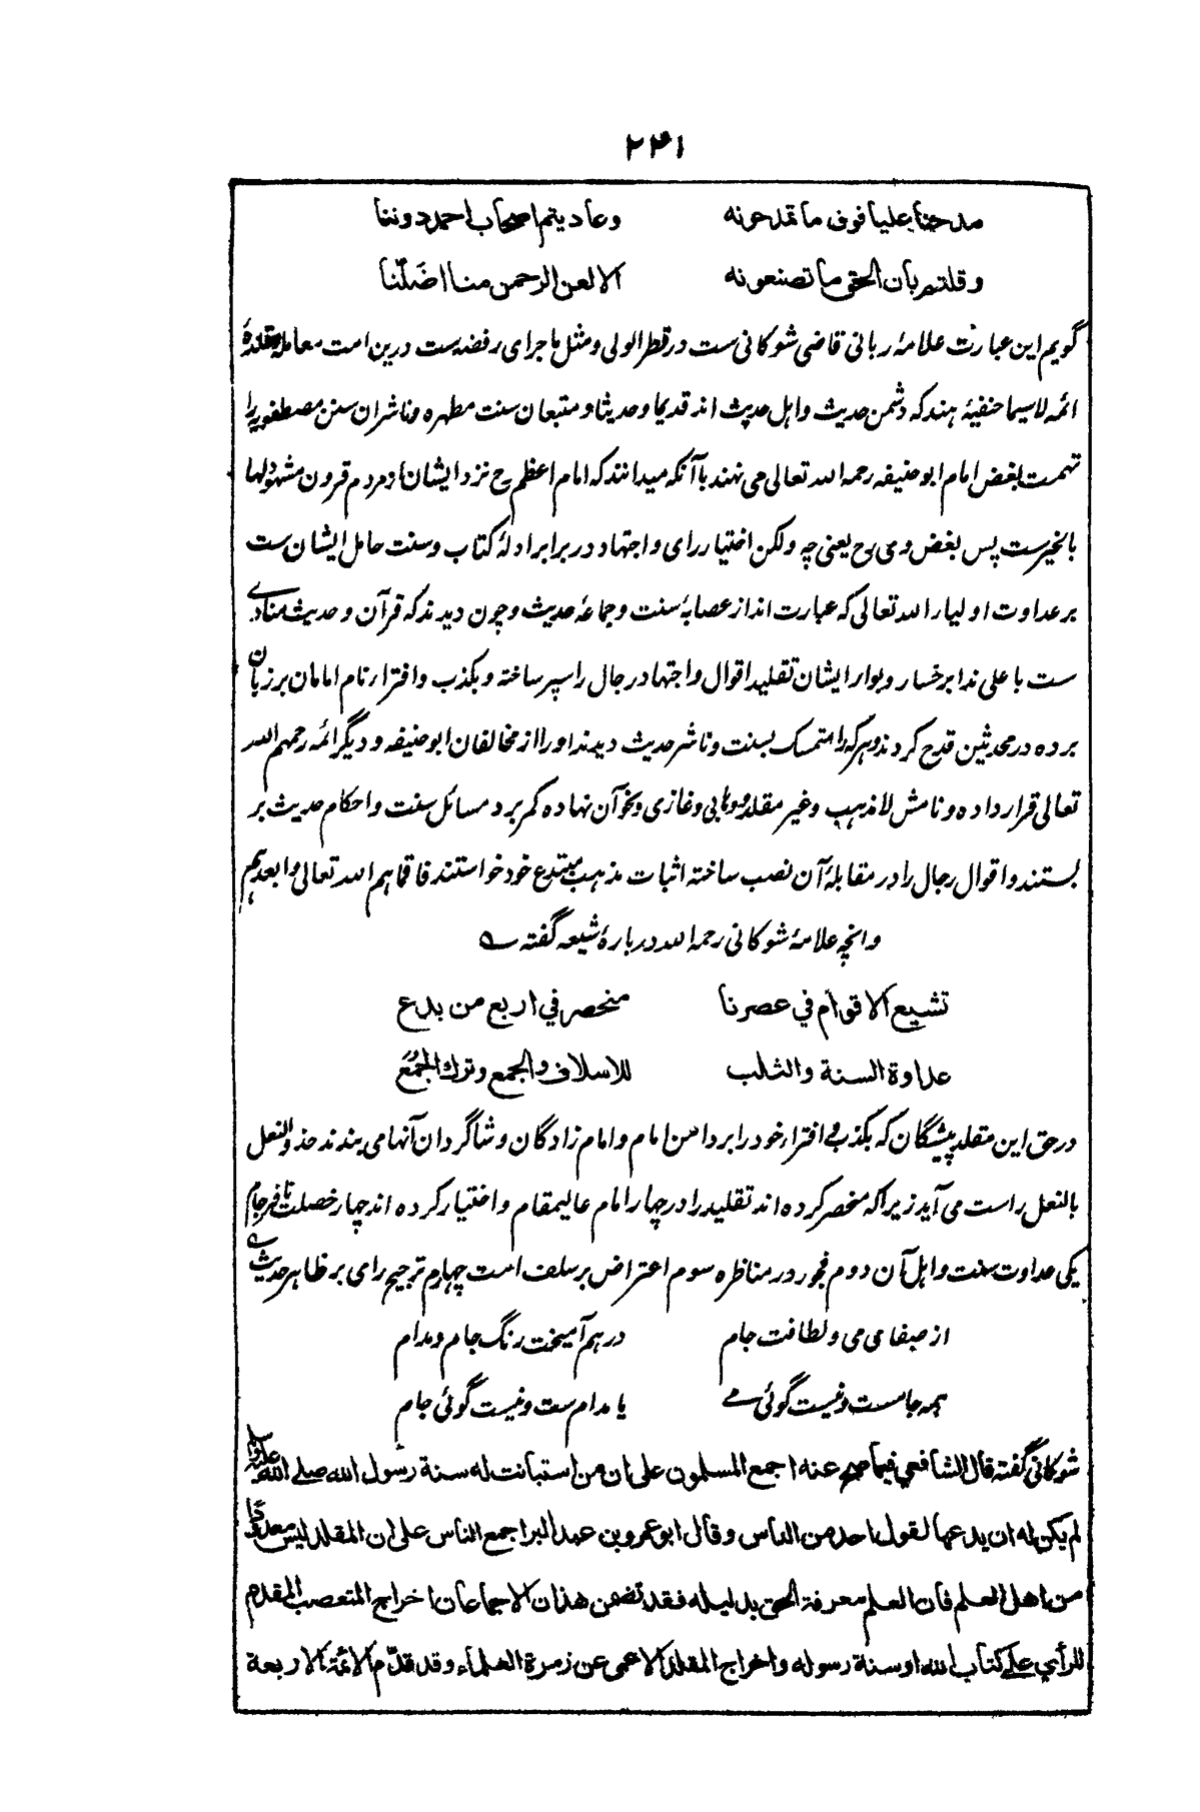 ۲۴۱
مدحنا عليا فوق ما تمدحونه وعاديتم اصحاب احمد دوننا
وقلتم بان الحق ما تصنعونه الا لعن الرحمن منا اضلّنا
گویم این عبارت علامهٔ ربانی قاضی شوکانی ست در قطر الولی و مثل ماجرای رفضه ست درین امت معاملهٔ مقلدهٔ
ائمه لاسیما حنفیهٔ هند که دشمن حدیث و اهل حدیث اند قدیما و حدیثا و متبعان سنت مطهره و ناشران سنن مصطفویه را
تهمت بغض امام ابو حنیفه رحمه الله تعالی می نهند با آنکه میدانند که امام اعظم رح نزد ایشان از مردم قرون مشهود لها
بالخیر ست پس بغض وی رح یعنی چه ولکن اختیار رای و اجتهاد در برابر ادلهٔ کتاب و سنت حامل ایشان ست
بر عداوت اولیاء الله تعالی که عبارت اند از عصابهٔ سنت و جماعهٔ حدیث و چون دیدند که قرآن و حدیث منادی
ست با علی ندا بر خسار و بوار ایشان تقلید اقوال و اجتهاد رجال را سپر ساخته و بکذب و افتراء نام امامان بر زبان
برده در محدثین قدح کردند و هر که را متمسک بسنت و ناشر حدیث دیدند او را از مخالفان ابو حنیفه و دیگر ائمه رحمهم الله
تعالی قرار داده و نامش لامذهب و غیر مقلد و وهابی و غازی و نحو آن نهاده کمر برد مسائل سنت و احکام حدیث بر
بستند و اقوال رجال را در مقابلهٔ آن نصب ساخته اثبات مذهب مبتدع خود خواستند فاقماهم الله تعالی و ابعدهم
وانچه علامهٔ شوکانی رحمه الله دربارهٔ شیعه گفته ؎
تشيع الاقوام في عصرنا منحصر في اربع من بدع
عداوة السنة والثلب للاسلاف والجمع وترك الجمع
در حق این مقلد پیشگان که بکذب و افتراء خود را بر دامن امام و امام زادگان و شاگردان آنها می بندند حذو النعل
بالنعل راست می آید زیرا که منحصر کرده اند تقلید را در چهار امام عالیمقام و اختیار کرده اند چهار خصلت نافرجام
یکی عداوت سنت و اهل آن دوم فجور در مناظره سوم اعتراض بر سلف امت چهارم ترجیح رای بر ظاهر حدیث ؎
از صفای می و لطافت جام درهم آمیخت رنگ جام و مدام
همه جامست و نیست گوئی مے یا مدام ست و نیست گوئی جام
شوکانی گفته قال الشافعي فيما صح عنه اجمع المسلمون على ان من استبانت له سنة رسول الله صلى الله عليه وسلم
لم يكن له ان يدعها لقول احد من الناس وقال ابو عمرو بن عبد البر اجمع الناس على ان المقلد ليس معدودا
من اهل العلم فان العلم معرفة الحق بدليله فقد تضمن هذان الاجماعان اخراج المتعصب المقدم
للرأي على كتاب الله او سنة رسوله واخراج المقلد الاعمى عن زمرة العلماء وقد قدّم الائمة الاربعة